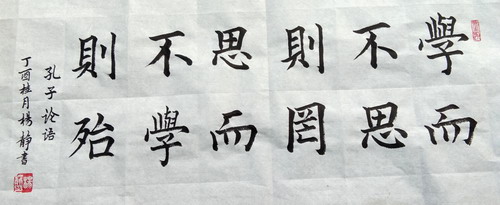 學而
不思
則罔
思而
不學
則殆
孔子论语
丁酉桂月杨静書